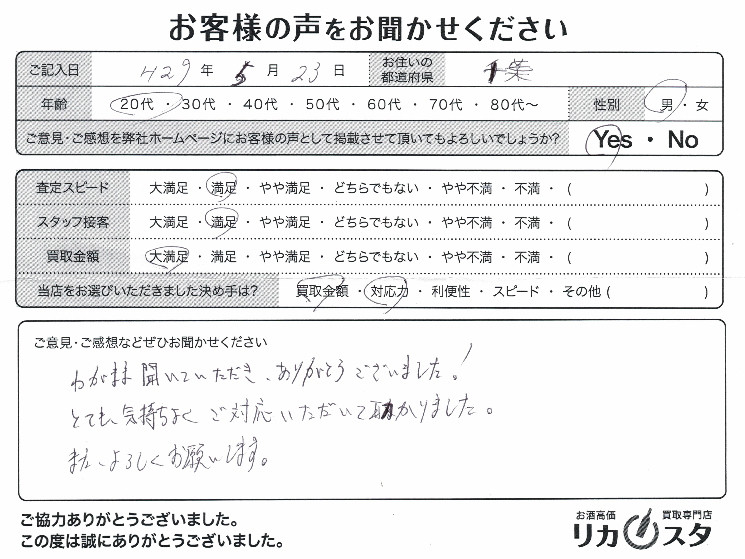 お客様の声をお聞かせください
ご記入日 H29年 5月 23日 お住いの都道府県 千葉
年齢 20代・30代・40代・50代・60代・70代・80代〜 性別 男・女
ご意見・ご感想を弊社ホームページにお客様の声として掲載させて頂いてもよろしいでしょうか? Yes・No
査定スピード 大満足・満足・やや満足・どちらでもない・やや不満・不満・( )
スタッフ接客 大満足・満足・やや満足・どちらでもない・やや不満・不満・( )
買取金額 大満足・満足・やや満足・どちらでもない・やや不満・不満・( )
当店をお選びいただきました決め手は? 買取金額・対応力・利便性・スピード・その他( )
ご意見・ご感想などぜひお聞かせください
わがまま聞いていただき、ありがとうございました!
とても、気持ちよくご対応いただいて助かりました。
また、よろしくお願いします。
ご協力ありがとうございました。
この度は誠にありがとうございました。
お酒高価 買取専門店
リカスタ